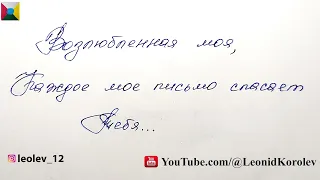 Возлюбленная моя,
Каждое мое письмо спасает
тебя...
leolev_12
YouTube.com/@LeonidKorolev